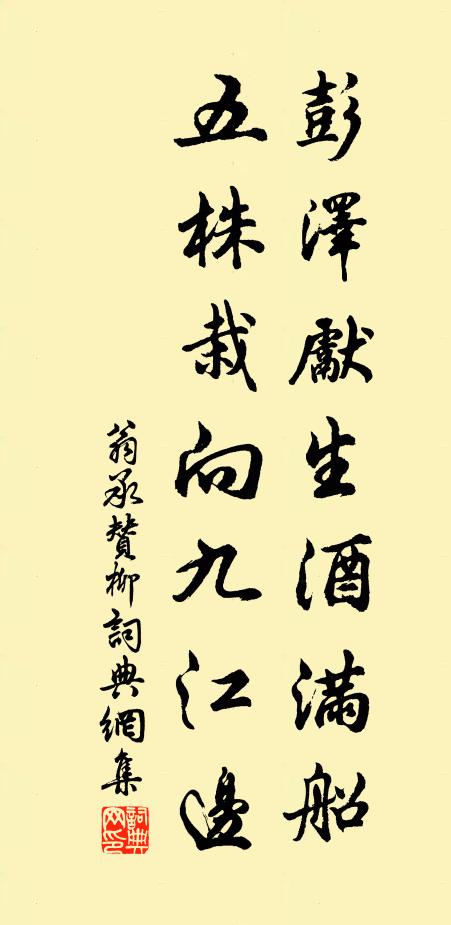 彭澤獻生酒滿船
五株栽向九江邊
翁承贊柳詞典網集
詞典網印